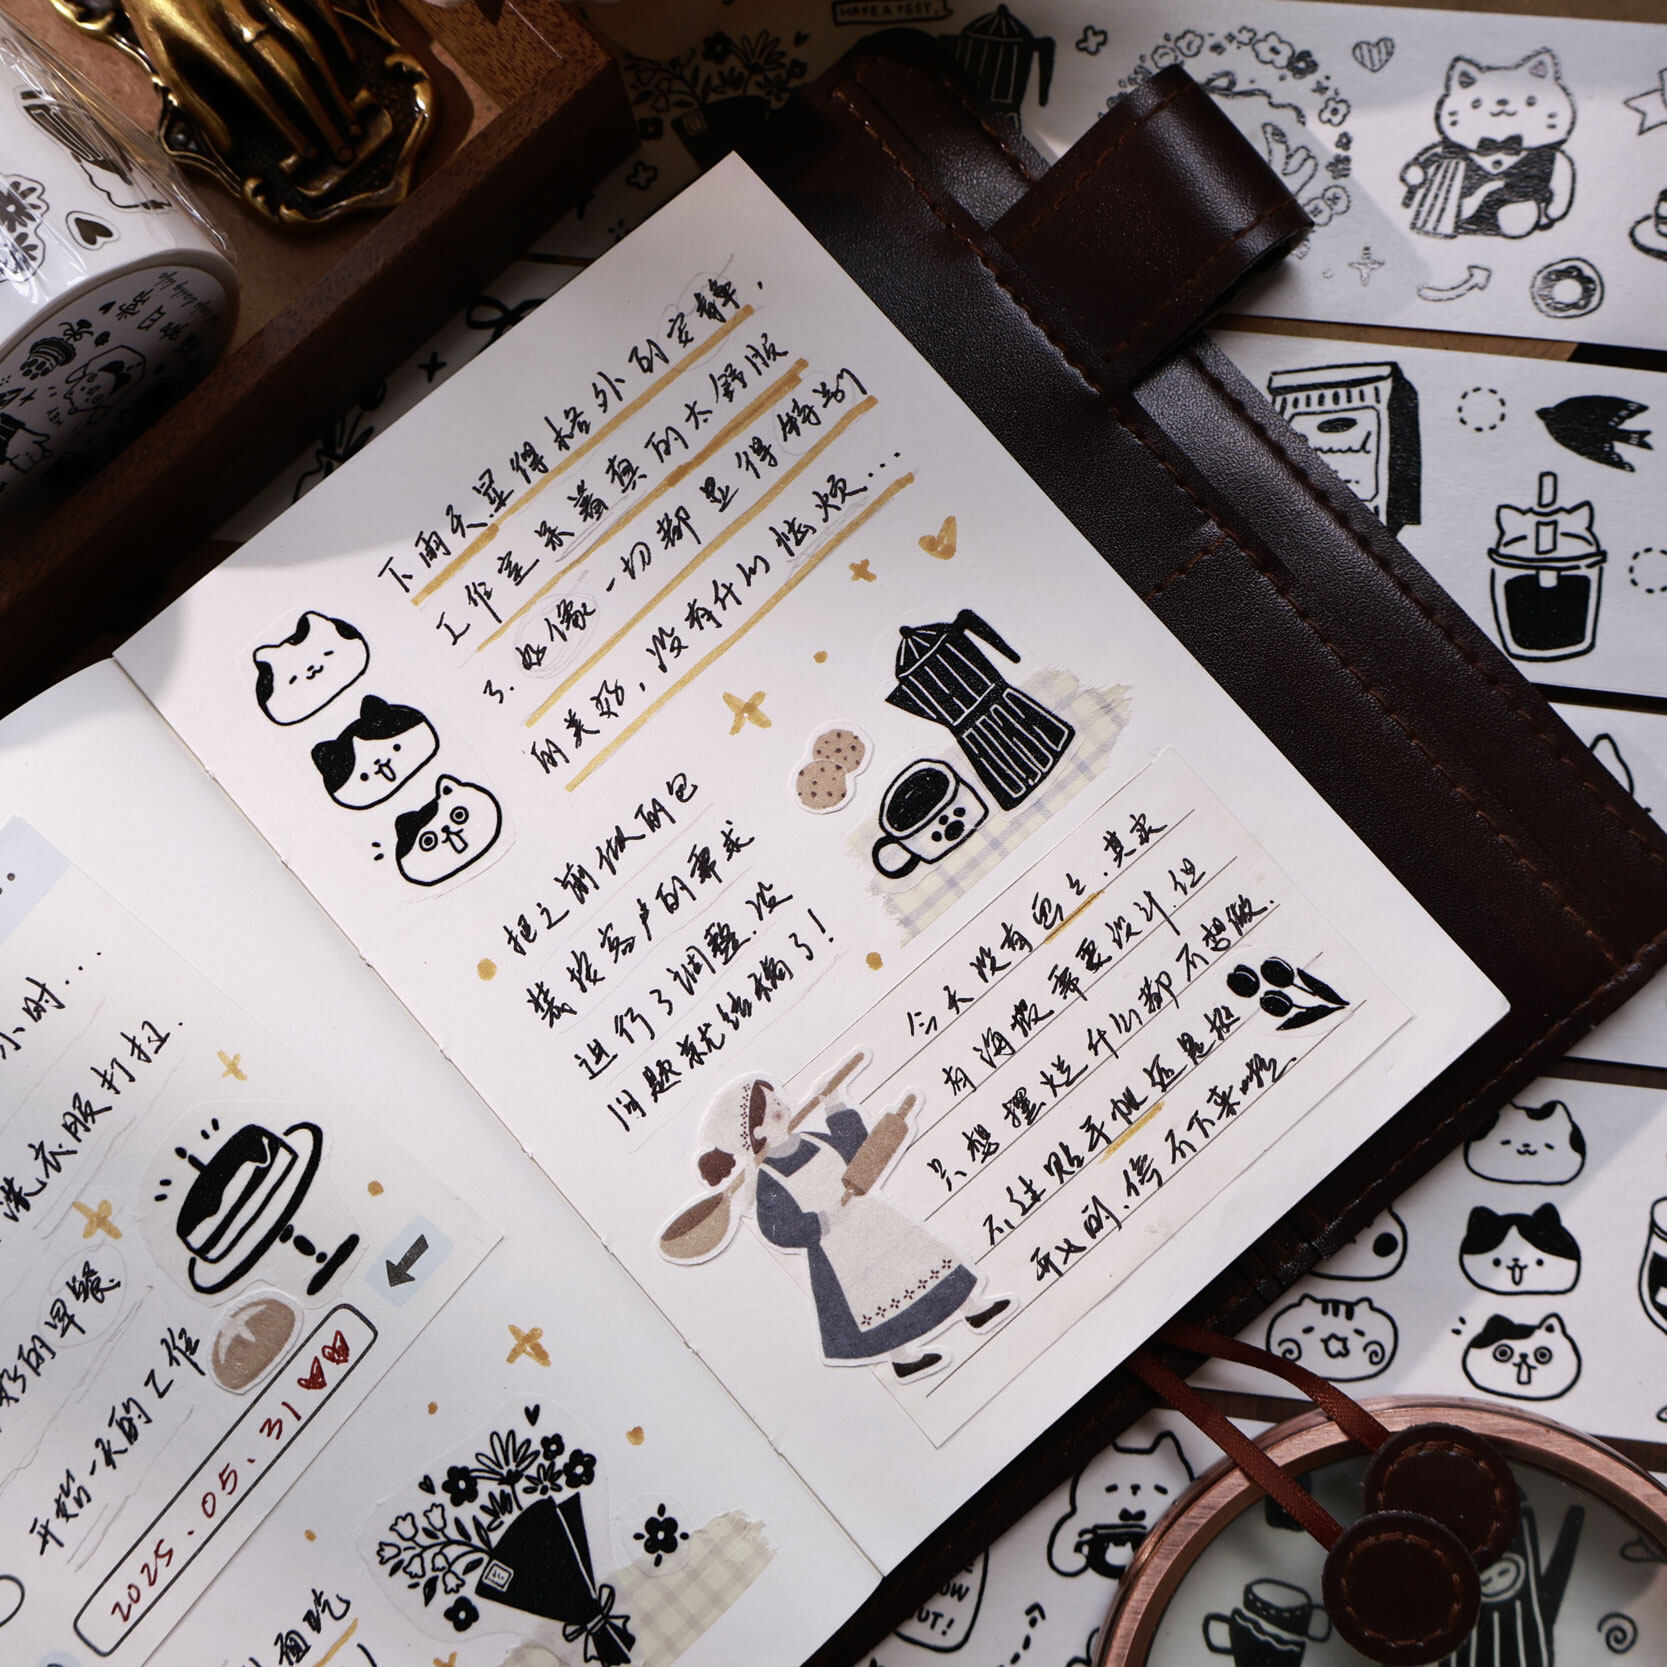 下雨天显得格外的安静，
工作室呆着真的太舒服
了. 好像一切都显得特别
的美好，没有什么烦恼...
把之前做的包
装按客户的需求
进行了调整.没
问题就结稿了!
今天没有包上.其实
有海报需要设计.但
只想摆烂什么都不想做.
不过贴手帐还是挺
开心的.停不下来啦.
小时...
洗衣服打扫.
的早餐
开始一天的工作
2025.05.31
HAVE A REST.
OUT!